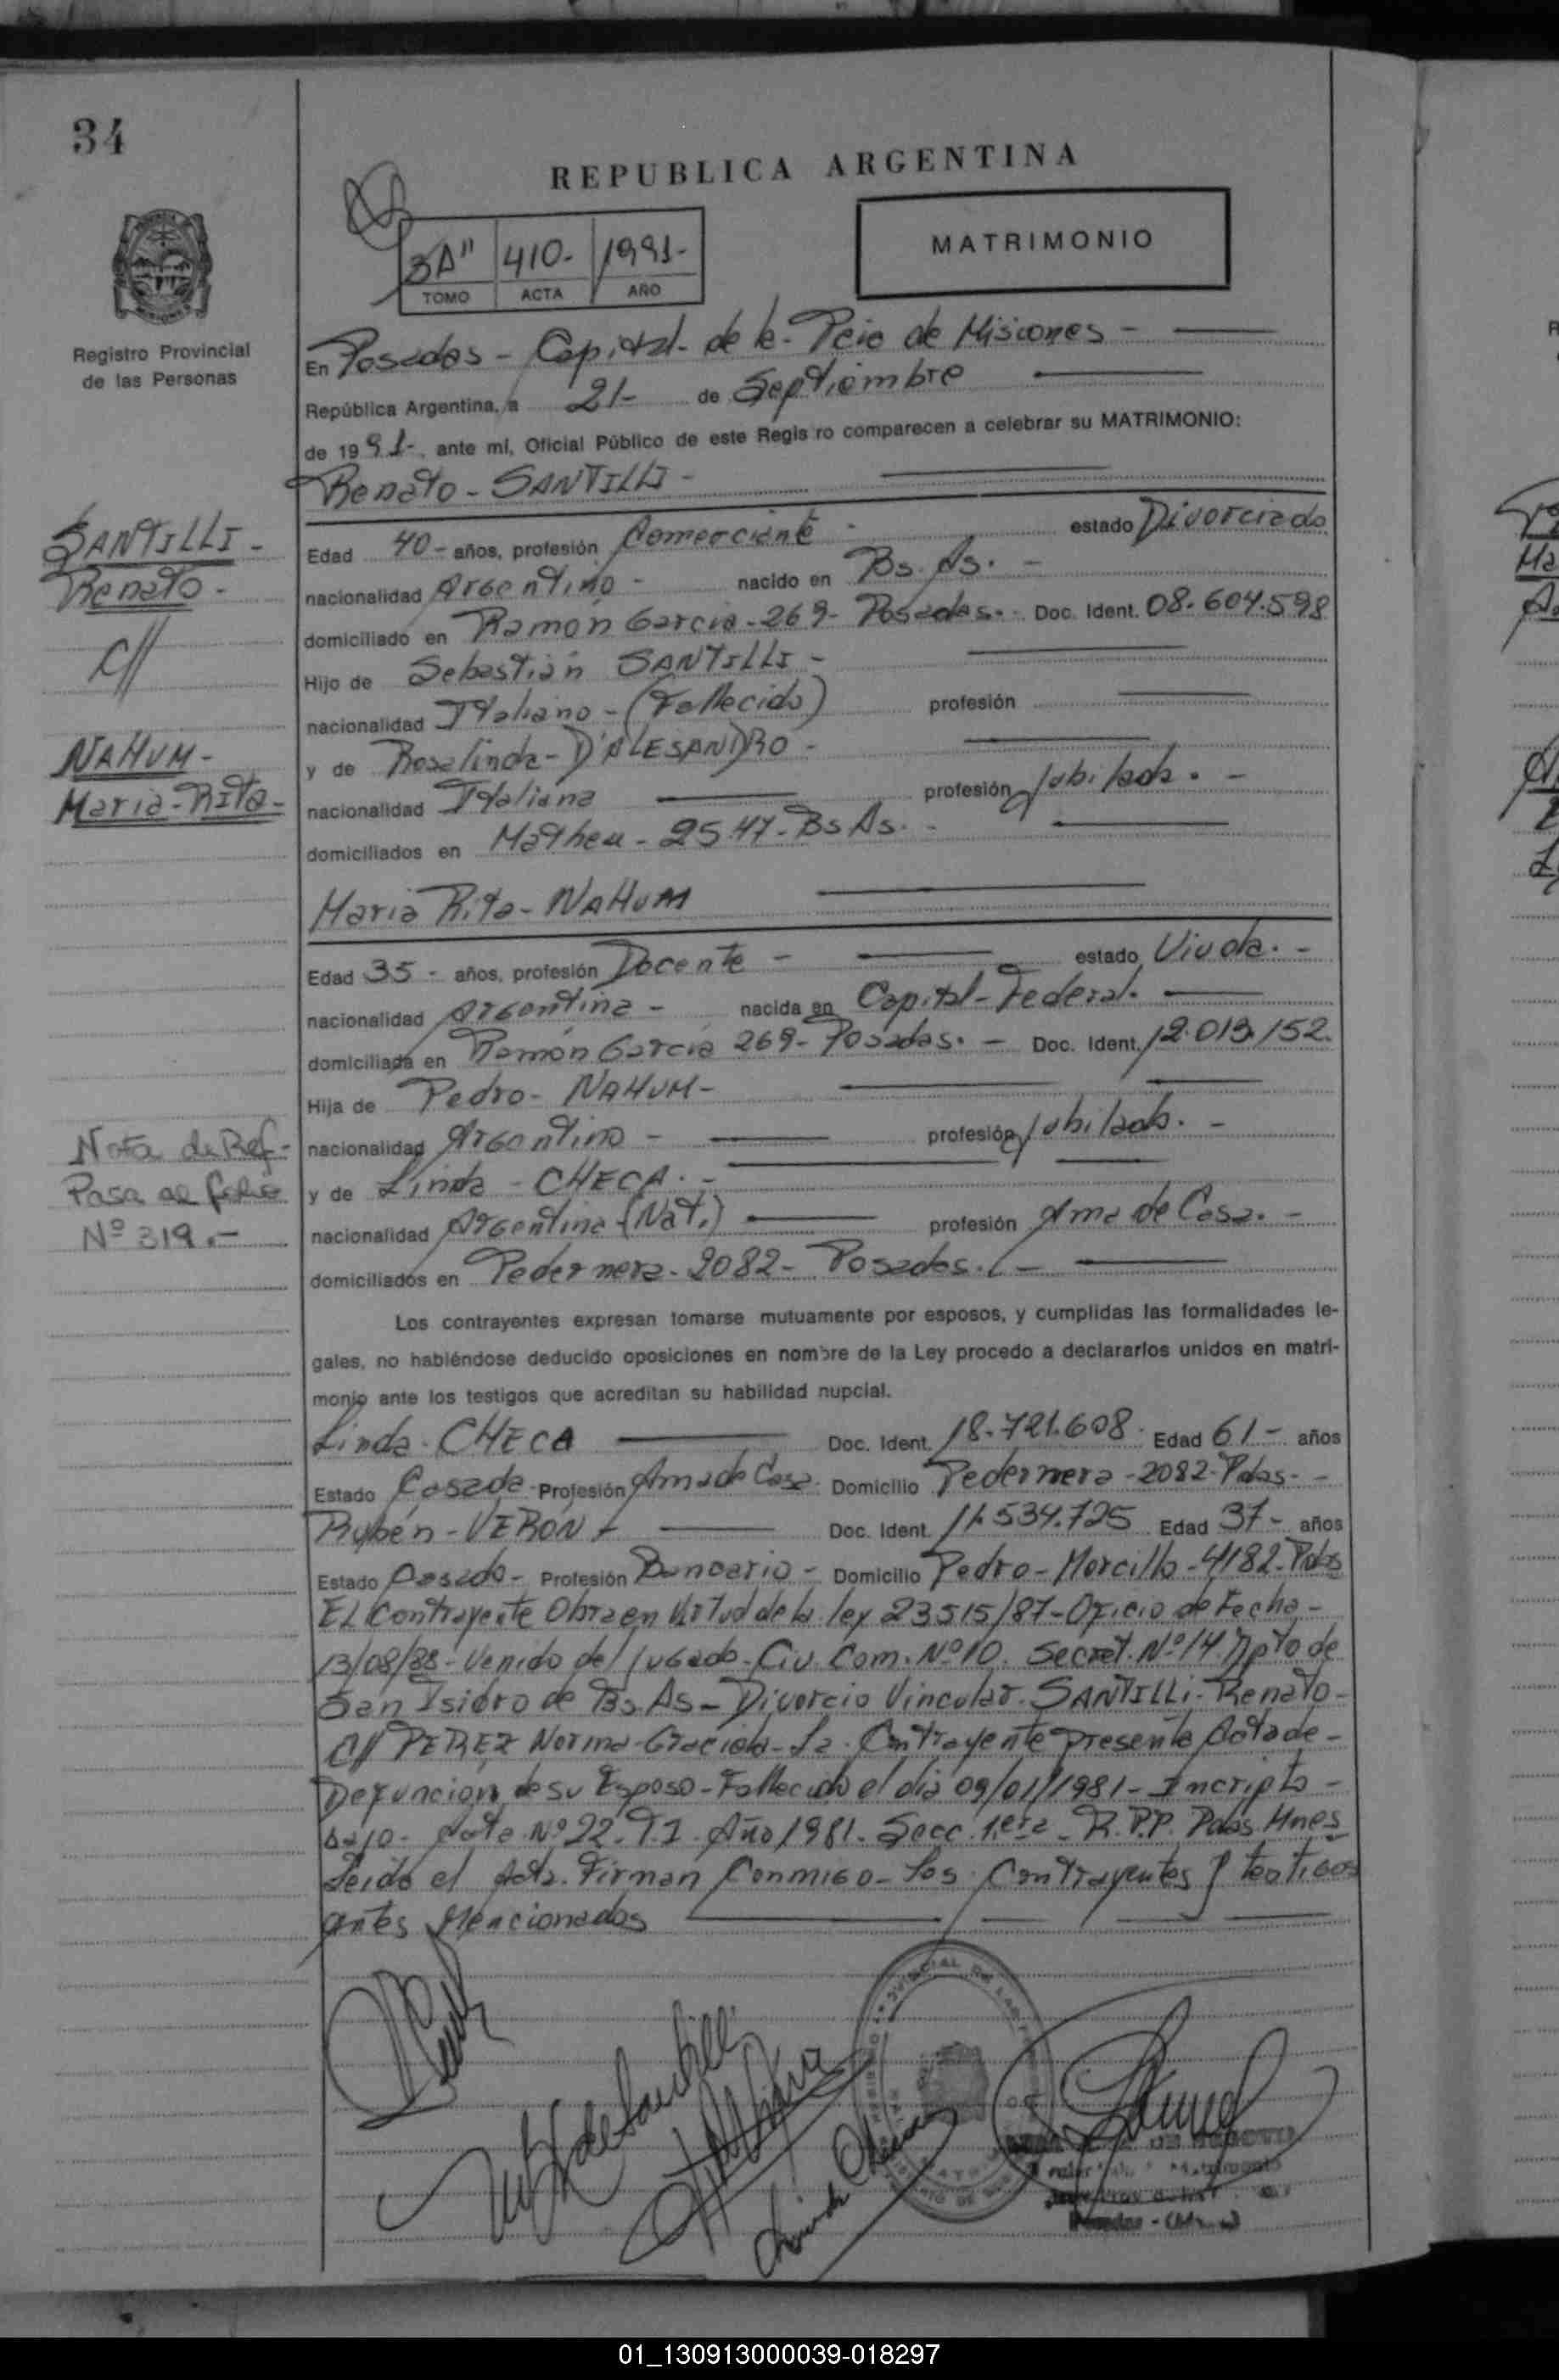 34
REPUBLICA ARGENTINA
3A" 410- 1991-
TOMO ACTA AÑO
MATRIMONIO
Registro Provincial
de las Personas
En Posadas - Capital - de la - Pcia de Misiones -
República Argentina, a 21- de Septiembre
de 1991-, ante mi, Oficial Público de este Regis ro comparecen a celebrar su MATRIMONIO:
Renato - SANTILLI -
SANTILLI -
Renato -
C//
NAHUM -
Maria - Rita -
Edad 40 - años, profesión Comerciante - estado Divorciado
nacionalidad Argentino - nacido en Bs. As. -
domiciliado en Ramón Garcia - 269 - Posadas. - Doc. Ident. 08.604.598
Hijo de Sebastián SANTILLI -
nacionalidad Italiano - (Fallecido) profesión
y de Rosalinda - D'ALESANDRO -
nacionalidad Italiana profesión Jubilada. -
domiciliados en Matheu - 2547 - Bs As. -
Maria Rita - NAHUM
Edad 35 - años, profesión Docente - estado Viuda. -
nacionalidad Argentina - nacida en Capital - Federal.
domiciliada en Ramón Garcia 269 - Posadas. - Doc. Ident. 12.013.152.
Hija de Pedro - NAHUM -
nacionalidad Argentino - profesión Jubilado. -
y de Linda - CHECA. -
nacionalidad Argentina (Nat.) profesión Ama de Casa. -
domiciliados en Pedernera - 2082 - Posadas. -
Nota de Ref -
Pasa al folio
Nº 319. -
Los contrayentes expresan tomarse mutuamente por esposos, y cumplidas las formalidades le-
gales, no habiéndose deducido oposiciones en nombre de la Ley procedo a declararlos unidos en matri-
monio ante los testigos que acreditan su habilidad nupcial.
Linda - CHECA Doc. Ident. 18.721.608 Edad 61 - años
Estado Casada - Profesión Ama de Casa. Domicilio Pedernera - 2082 - Pdas. -
Rubén - VERON - Doc. Ident. 11.534.725 Edad 37 - años
Estado Casado - Profesión Bancario - Domicilio Pedro - Morcillo - 4182 - Pdas
EL Contrayente Obra en Virtud de la ley 23515/87 - Oficio de Fecha -
13/08/88 - Venido del Jusgado - Civ. Com. Nº 10. Secret. Nº 14. Dpto de
San Isidro de Bs. As - Divorcio Vincular. SANTILLI - Renato -
C// PEREZ Norma - Graciela - La Contrayente presente Acta de -
Defuncion de su Esposo - Fallecido el dia 09/01/1981 - Incripto -
bajo - Acta Nº 22. T.I. Año 1981. Secc. 1era - R.P.P. Pdas Mnes
Leida el Acta. Firman Conmigo - los Contrayentes y testigos
antes Mencionados
Linda
01_130913000039-018297